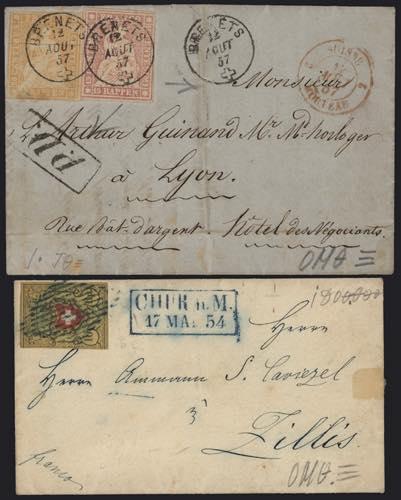 BRENETS
12
AOUT
57
BRENETS
12
AOUT
57
BRENETS
12
AOUT
57
15 RAPPEN
SUISSE
2
Monsieur
L. Arthur Guinand Mr. Md. horloger
PD
à Lyon.
Rue Bât-d'argent. Hôtel des Négociants.
CHUR n. M.
17 MAI 54
Herrn
Herrn Ammann S. Caviezel
Zillis.
franco